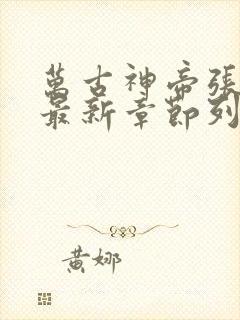 萬古神帝張
最新章節列
黃娜